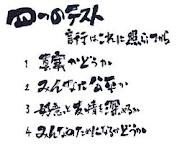 四つのテスト
言行はこれに照らしてから
1 真実かどうか
2 みんなに公平か
3 好意と友情を深めるか
4 みんなのためになるかどうか